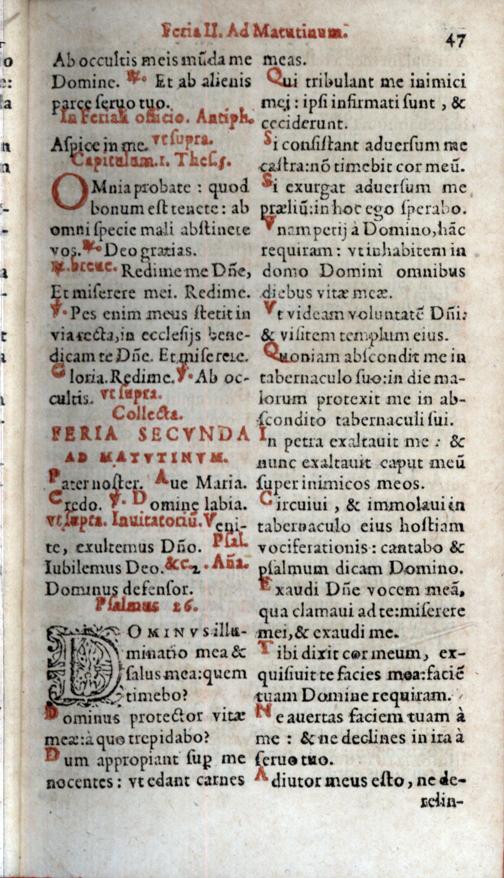 Feria II. Ad Matutinum.
47
Ab occultis meis mũda me
Domine. ℟. Et ab alienis
parce seruo tuo.
In Feriali officio. Antiph.
Aspice in me. vt supra.
Capitulum. 1. Thes. 5.
OMnia probate : quod
bonum est tenete : ab
omni specie mali abstinete
vos. ℟. Deo gratias.
℟. breue. Redime me Dñe,
Et miserere mei. Redime.
℣. Pes enim meus stetit in
via recta, in ecclesijs bene-
dicam te Dñe. Et miserere.
Gloria. Redime. ℣. Ab oc-
cultis. vt supra.
Collecta.
FERIA SECVNDA
AD MATVTINVM.
Pater noster. Aue Maria.
Credo. ℣. Domine labia.
vt supra. Inuitatoriũ. Veni-
te, exultemus Dño. Psal.
Iubilemus Deo. &c. Aña.
Dominus defensor.
Psalmus 26.
DOMINVS illu-
minatio mea &
salus mea: quem
timebo?
Dominus protector vitæ
meæ: à quo trepidabo?
Dum appropiant sup me
nocentes : vt edant carnes
meas.
Qui tribulant me inimici
mei : ipsi infirmati sunt , &
ceciderunt.
Si consistant aduersum me
castra: nõ timebit cor meũ.
Si exurgat aduersum me
præliũ: in hoc ego sperabo.
Vnam petij à Domino, hãc
requiram : vt inhabitem in
domo Domini omnibus
diebus vitæ meæ.
Vt videam voluntatẽ Dñi:
& visitem templum eius.
Quoniam abscondit me in
tabernaculo suo: in die ma-
lorum protexit me in ab-
scondito tabernaculi sui.
In petra exaltauit me : &
nunc exaltauit caput meũ
super inimicos meos.
Circuiui , & immolaui in
tabernaculo eius hostiam
vociferationis : cantabo &
psalmum dicam Domino.
Exaudi Dñe vocem meã,
qua clamaui ad te: miserere
mei, & exaudi me.
Tibi dixit cor meum, ex-
quisiuit te facies mea: faciẽ
tuam Domine requiram.
Ne auertas faciem tuam à
me : & ne declines in ira à
seruo tuo.
Adiutor meus esto, ne de-
relin-